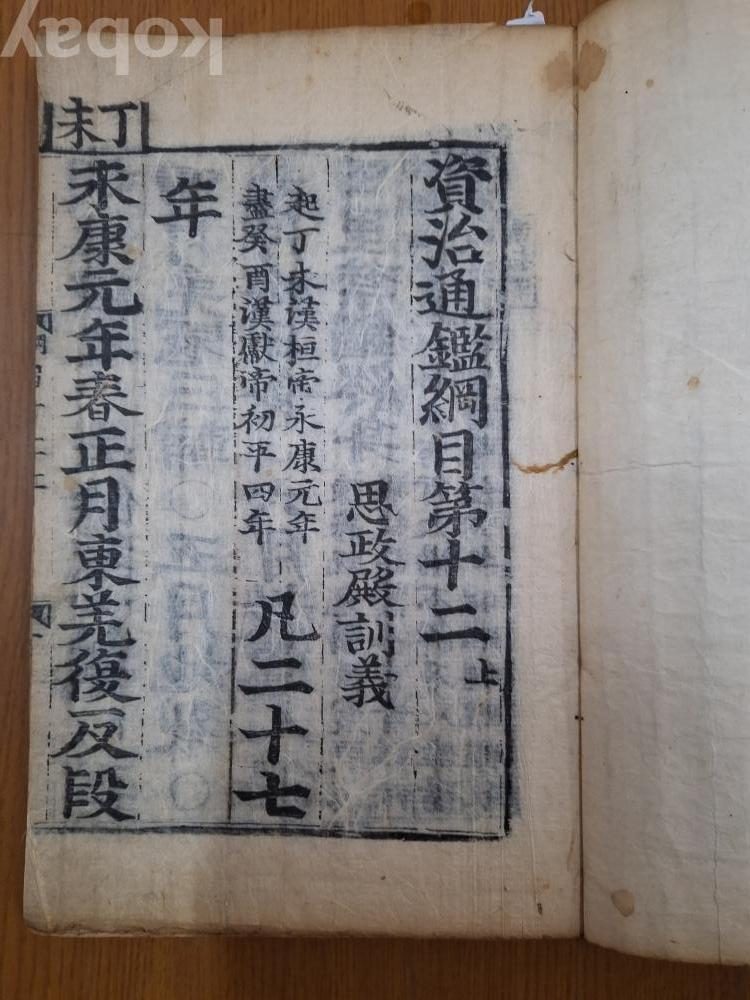 kobay
資治通鑑綱目第十二上
思政殿訓義
起丁未漢桓帝永康元年
盡癸酉漢獻帝初平四年
凡二十七
年
丁未
永康元年春正月東羌復反段